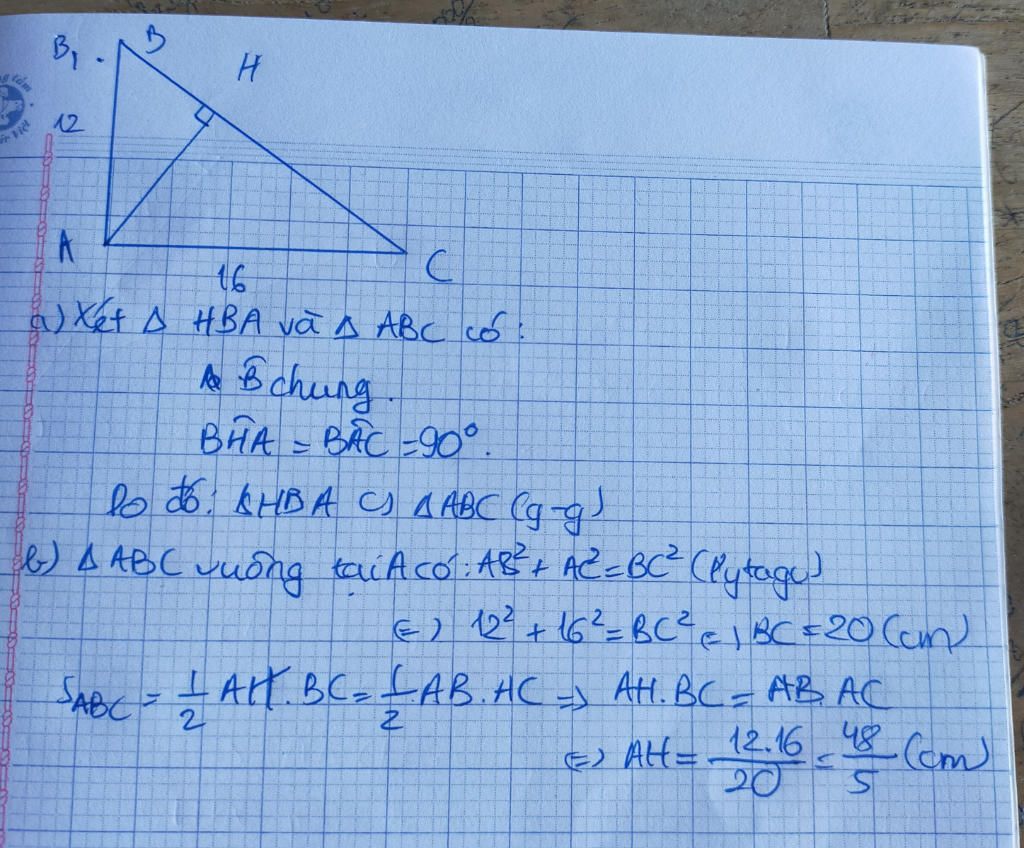 B₁.
B
H
12
A
C
16
a) Xét Δ HBA và Δ ABC có:
B̂ chung.
BĤA = BÂC = 90°.
Do đó: ΔHBA ∽ ΔABC (g-g)
b) Δ ABC vuông tại A có: AB² + AC² = BC² (Pytago)
⇔ 12² + 16² = BC² ⇔ BC = 20 (cm)
S_ABC = 1/2 AH . BC = 1/2 AB . AC ⇒ AH . BC = AB . AC
⇔ AH = 12.16/20 = 48/5 (cm)